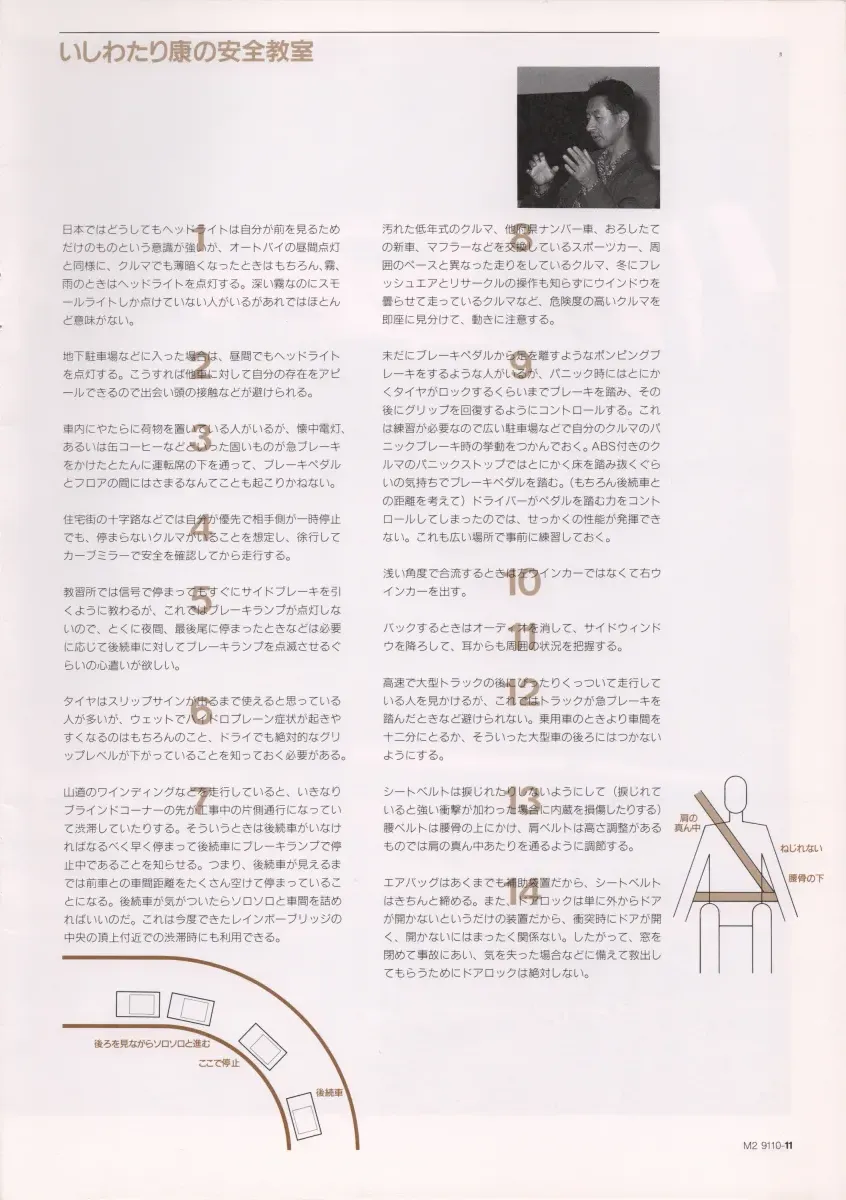 いしわたり康の安全教室
1
日本ではどうしてもヘッドライトは自分が前を見るため
だけのものという意識が強いが、オートバイの昼間点灯
と同様に、クルマでも薄暗くなったときはもちろん、霧、
雨のときはヘッドライトを点灯する。深い霧なのにスモ
ールライトしか点けていない人がいるがあれではほとん
ど意味がない。
2
地下駐車場などに入った場合は、昼間でもヘッドライト
を点灯する。こうすれば他車に対して自分の存在をアピ
ールできるので出会い頭の接触などが避けられる。
3
車内にやたらに荷物を置いている人がいるが、懐中電灯、
あるいは缶コーヒーなどといった固いものが急ブレーキ
をかけたとたんに運転席の下を通って、ブレーキペダル
とフロアの間にはさまるなんてことも起こりかねない。
4
住宅街の十字路などでは自分が優先で相手側が一時停止
でも、停まらないクルマがいることを想定し、徐行して
カーブミラーで安全を確認してから走行する。
5
教習所では信号で停まってもすぐにサイドブレーキを引
くように教わるが、これではブレーキランプが点灯しな
いので、とくに夜間、最後尾に停まったときなどは必要
に応じて後続車に対してブレーキランプを点滅させるぐ
らいの心遣いが欲しい。
6
タイヤはスリップサインが出るまで使えると思っている
人が多いが、ウェットでハイドロプレーン症状が起きや
すくなるのはもちろんのこと、ドライでも絶対的なグリ
ップレベルが下がっていることを知っておく必要がある。
7
山道のワインディングなどを走行していると、いきなり
ブラインドコーナーの先が工事中の片側通行になってい
て渋滞していたりする。そういうときは後続車がいなけ
ればなるべく早く停まって後続車にブレーキランプで停
止中であることを知らせる。つまり、後続車が見えるま
では前車との車間距離をたくさん空けて停まっているこ
とになる。後続車が気がついたらソロソロと車間を詰め
ればいいのだ。これは今度できたレインボーブリッジの
中央の頂上付近での渋滞時にも利用できる。
後ろを見ながらソロソロと進む
ここで停止
後続車
8
汚れた低年式のクルマ、他府県ナンバー車、おろしたて
の新車、マフラーなどを交換しているスポーツカー、周
囲のペースと異なった走りをしているクルマ、冬にフレ
ッシュエアとリサークルの操作も知らずにウインドウを
曇らせて走っているクルマなど、危険度の高いクルマを
即座に見分けて、動きに注意する。
9
未だにブレーキペダルから足を離すようなポンピングブ
レーキをするような人がいるが、パニック時にはとにか
くタイヤがロックするくらいまでブレーキを踏み、その
後にグリップを回復するようにコントロールする。これ
は練習が必要なので広い駐車場などで自分のクルマのパ
ニックブレーキ時の挙動をつかんでおく。ABS付きのク
ルマのパニックストップではとにかく床を踏み抜くぐら
いの気持ちでブレーキペダルを踏む。(もちろん後続車と
の距離を考えて)ドライバーがペダルを踏む力をコント
ロールしてしまったのでは、せっかくの性能が発揮でき
ない。これも広い場所で事前に練習しておく。
10
浅い角度で合流するときは左ウインカーではなくて右ウ
インカーを出す。
11
バックするときはオーディオを消して、サイドウィンド
ウを降ろして、耳からも周囲の状況を把握する。
12
高速で大型トラックの後にぴったりくっついて走行して
いる人を見かけるが、これではトラックが急ブレーキを
踏んだときなど避けられない。乗用車のときより車間を
十二分にとるか、そういった大型車の後ろにはつかない
ようにする。
13
シートベルトは捩じれたりしないようにして(捩じれて
いると強い衝撃が加わった場合に内蔵を損傷したりする)
腰ベルトは腰骨の上にかけ、肩ベルトは高さ調整がある
ものでは肩の真ん中あたりを通るように調節する。
14
エアバッグはあくまでも補助装置だから、シートベルト
はきちんと締める。また、ドアロックは単に外からドア
が開かないというだけの装置だから、衝突時にドアが開
く、開かないにはまったく関係ない。したがって、窓を
閉めて事故にあい、気を失った場合などに備えて救出し
てもらうためにドアロックは絶対しない。
肩の
真ん中
ねじれない
腰骨の下
M2 9110-11